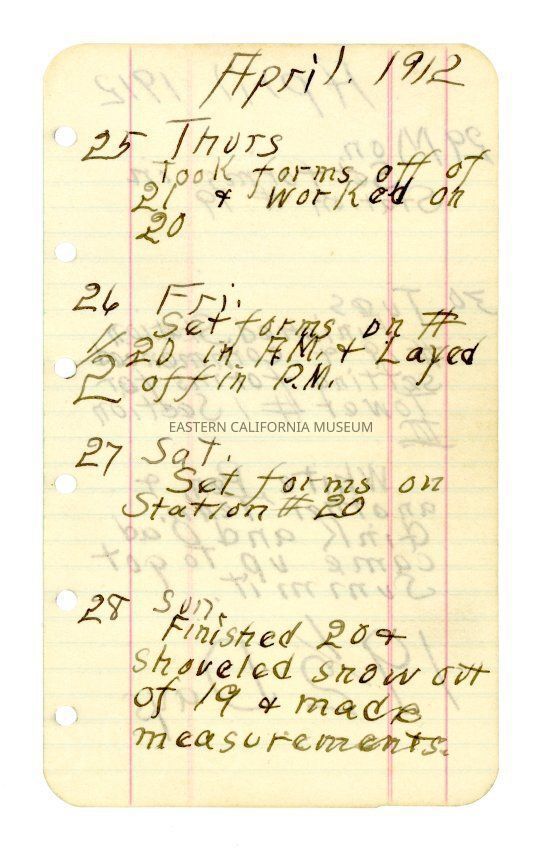 April. 1912
25 Thurs
Took forms off of
21 & worked on
20
26 Fri.
Set forms on #
20 in A.M. & Layed
1/2 off in P.M.
EASTERN CALIFORNIA MUSEUM
27 Sat.
Set forms on
Station # 20
28 Sun.
Finished 20 &
Shoveled snow out
of 19 & made
measurements.